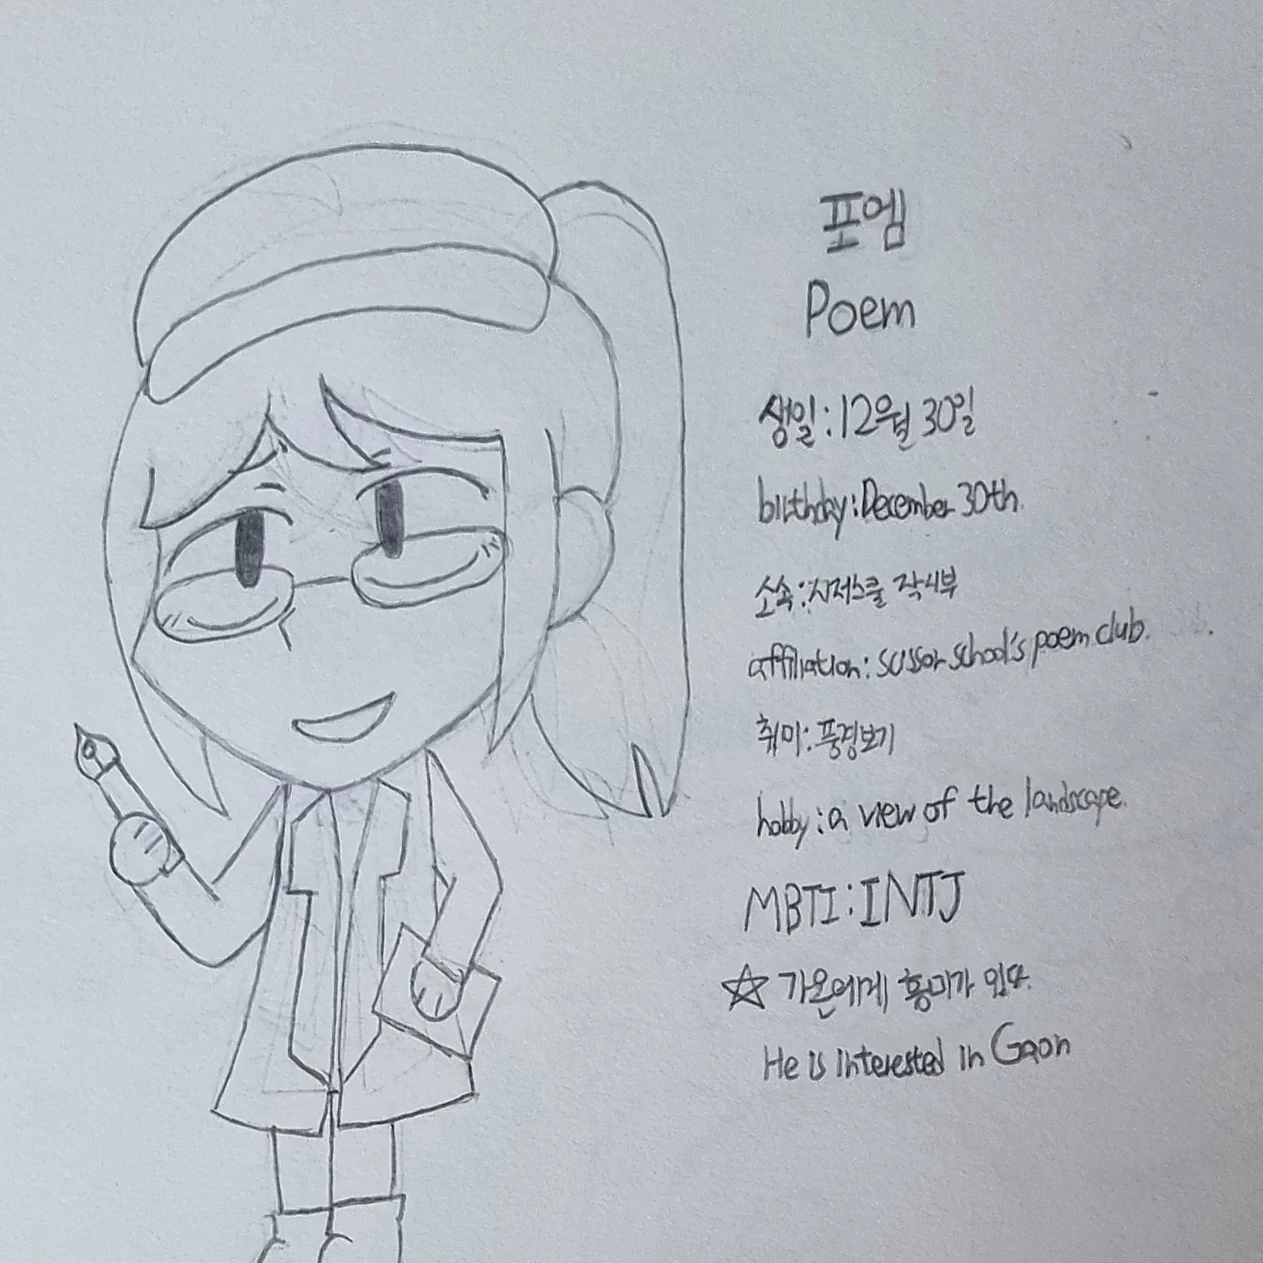 포엠
Poem
생일:12월 30일
birthday:December 30th.
소속:시저스쿨 작시부
affiliation: scissor school's poem club.
취미:풍경보기
hobby:a view of the landscape.
MBTI:INTJ
☆ 가온에게 흥미가 있다.
He is interested in Gaon